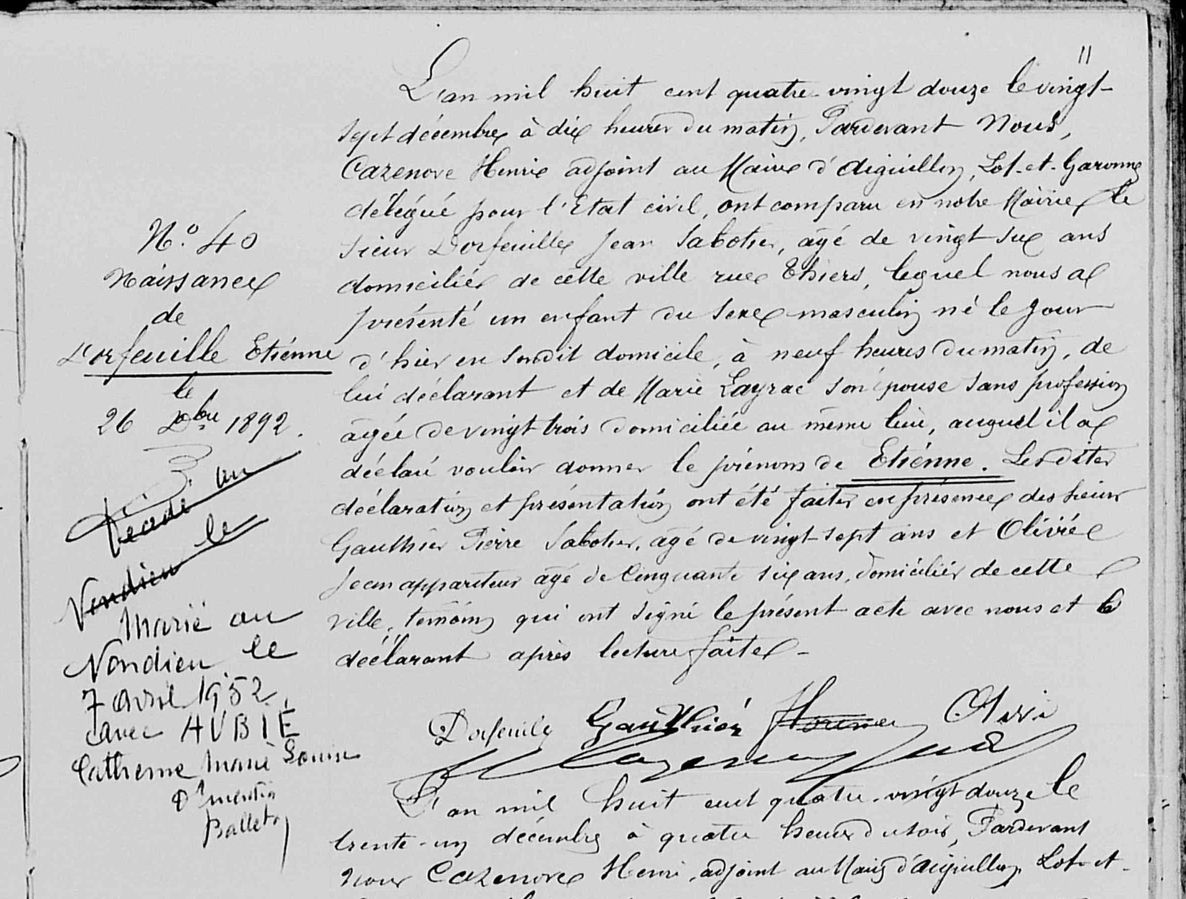 11
N.o 40
Naissance
de
Dorfeuille Etiénne
le
26 Xbre 1892.
Décédé au
Nondieu le
Marié au
Nondieu le
7 avril 1952
avec AUBIÉ
Catherine Marie Louise
Dt mention
L'an mil huit cent quatre-vingt douze le vingt-
sept décembre à dix heures du matin, Pardevant Nous,
Cazenove Henri adjoint au Maire d'Aiguillon, Lot-et-Garonne
délégué pour l'Etat civil, ont comparu en notre Mairie le
sieur Dorfeuille Jean Sabotier, agé de vingt six ans
domicilié de cette ville rue Thiers, lequel nous a
présenté un enfant du sexe masculin né le jour
d'hier en sondit domicile, à neuf heures du matin, de
lui déclarant et de Marie Layrac son épouse sans profession
agée de vingt trois domiciliée au même lieu, auquel il a
déclaré vouloir donner le prénoms de Etiénne. Lesdites
déclaration et présentation ont été faites en présence des sieurs
Gauthier Pierre Sabotier, agé de vingt-sept ans et Olivié
Jean appariteur agé de Cinquante six ans, domiciliés de cette
ville, témoins qui ont signé le présent acte avec nous et le
déclarant après lecture faite -
Dorfeuille Gauthier Olivi
L'an mil huit cent quatre-vingt douze le
trente-un décembre à quatre heures du soir, Pardevant
Nous Cazenove Henri, adjoint au Maire d'Aiguillon Lot-et-